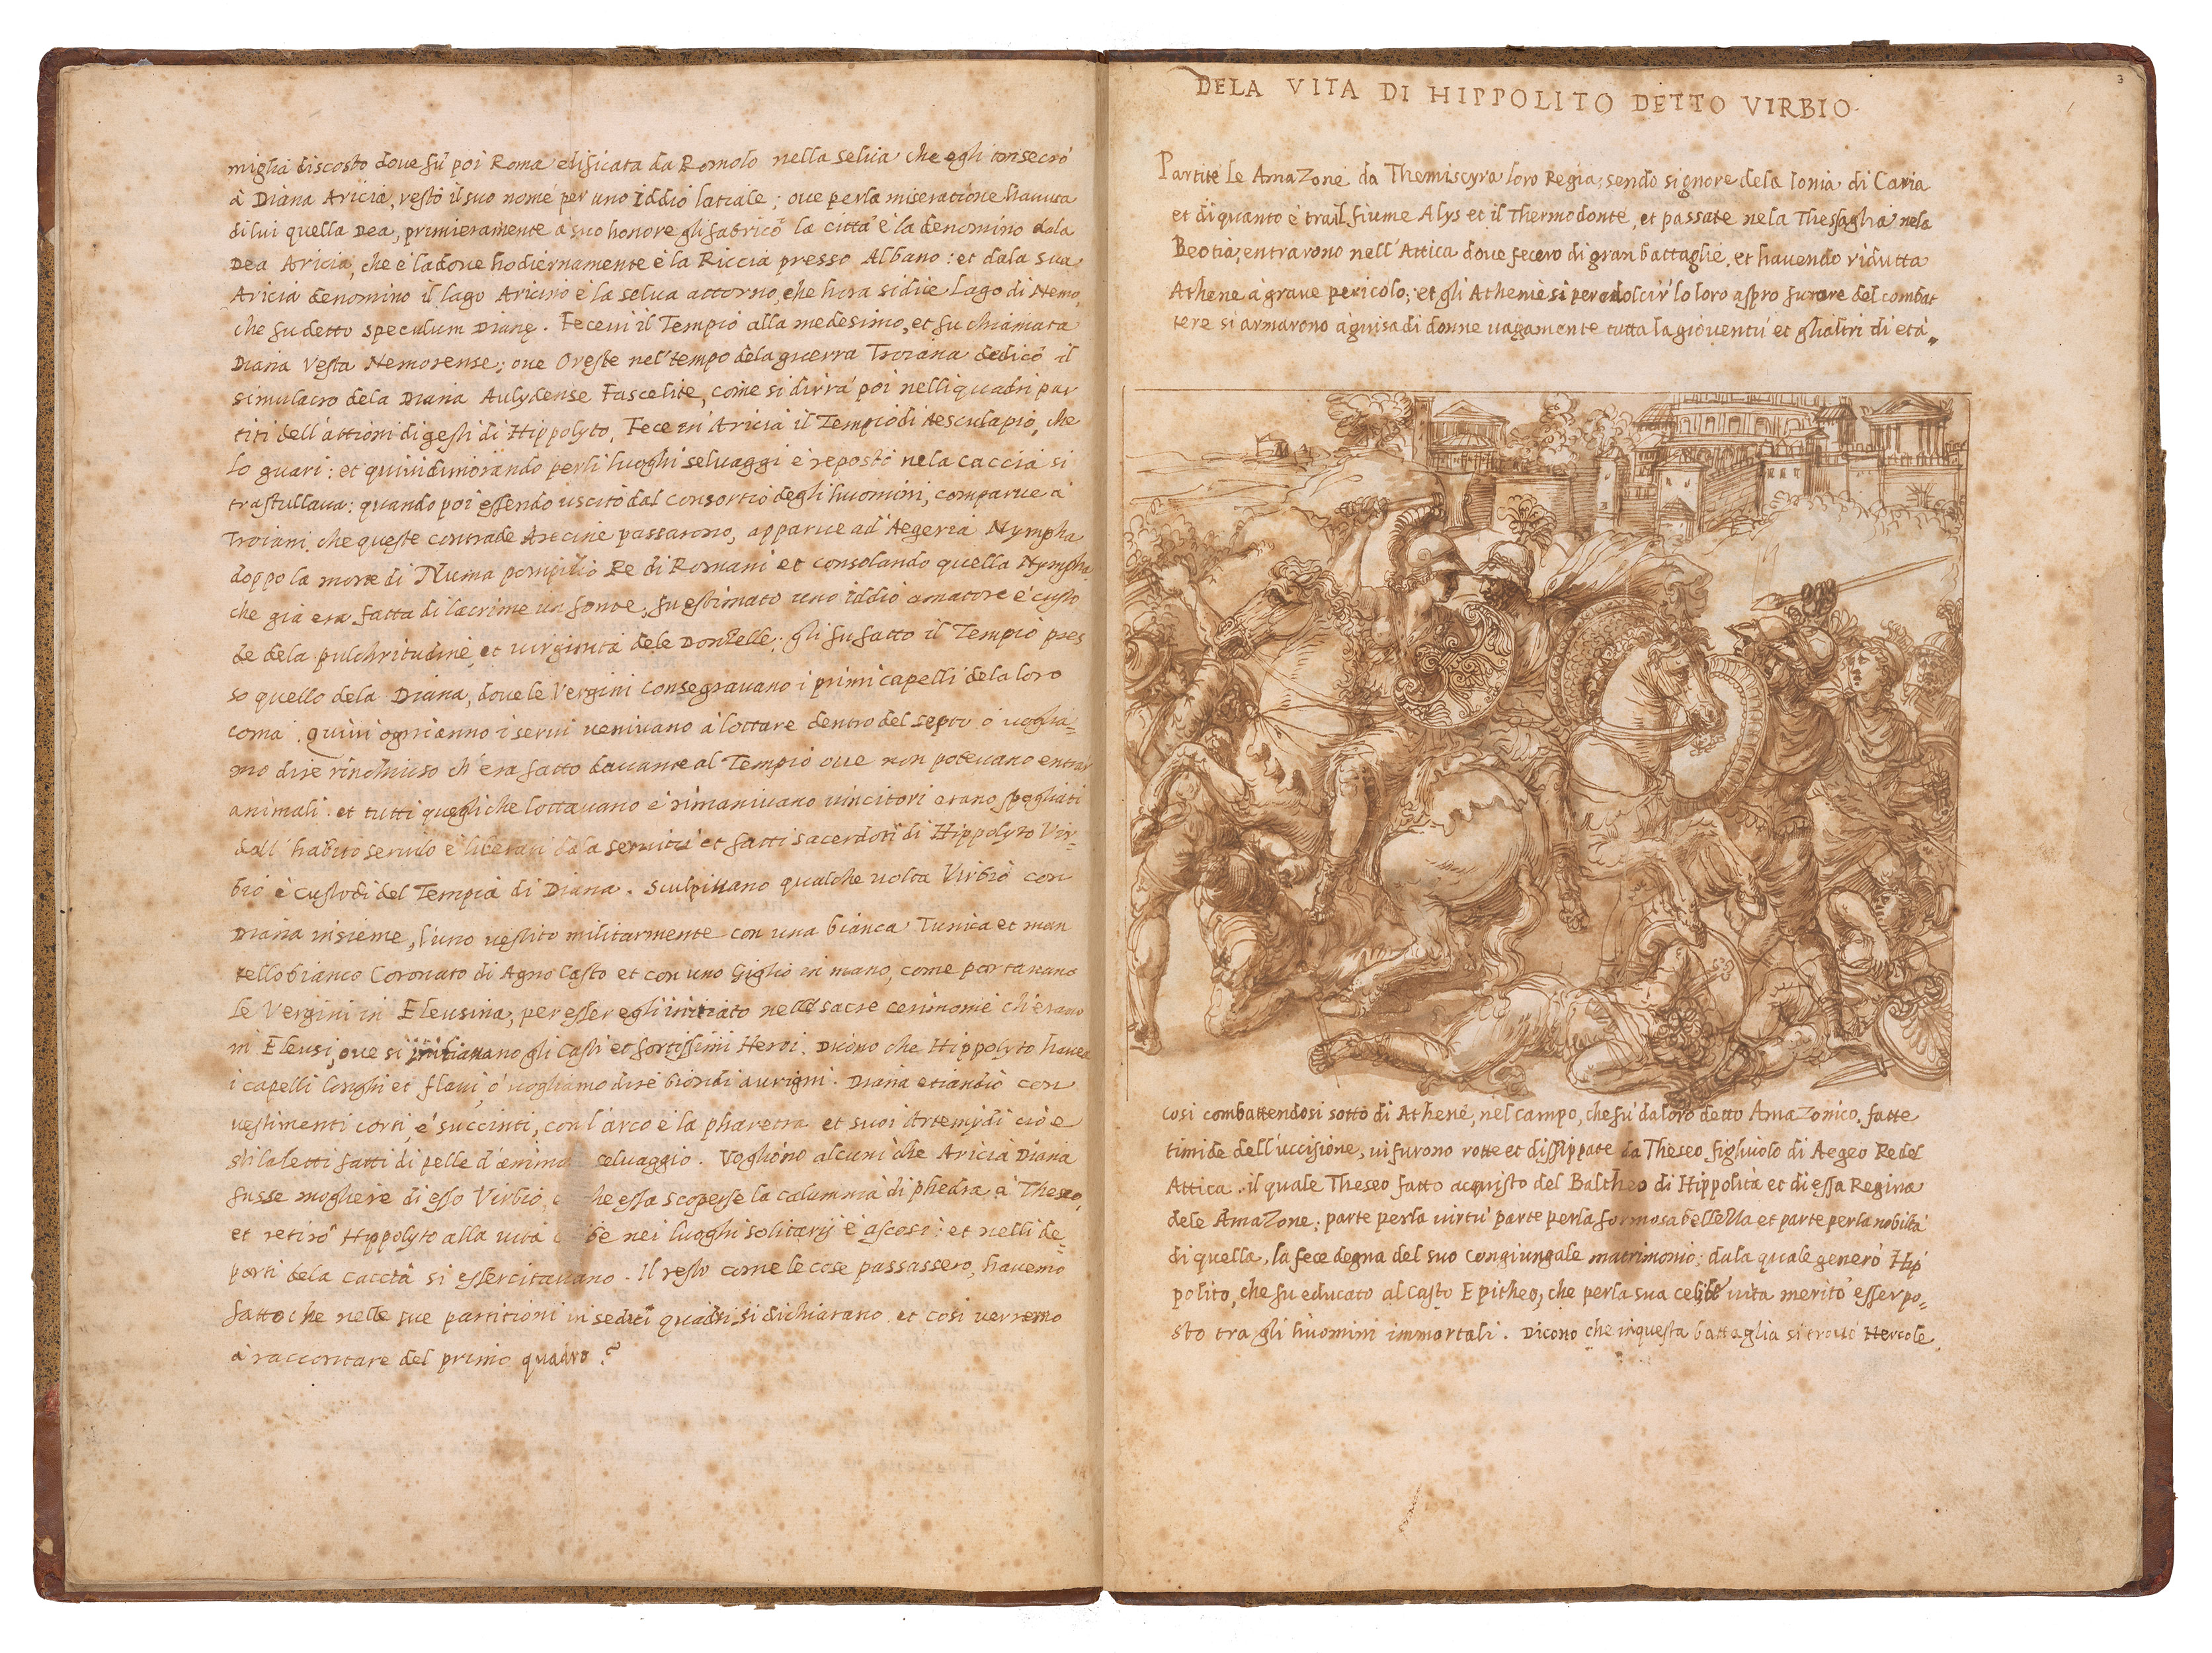 miglia discosto dove fù poi Roma edificata da Romolo nella selva che egli consecrò
à Diana Aricia, restò il suo nome per uno Iddio latiale; ove per la miseratione havuta
di lui quella Dea, primieramente a suo honore gli fabricò la città è la denomino dala
Dea Aricia, che è la dove hodiernamente è la Riccia presso Albano: et dala sua
Aricia denomino il lago Aricino è la selva attorno, che hora si dice Lago di Nemo,
che fu detto speculum Dianę. Fecevi il Tempio alla medesimo, et fu chiamata
Diana Vesta Nemorense; ove Oreste nel tempo dela guerra Troiana dedicò il
simulacro dela Diana Aulydense Fascelite, come si dirrà poi nelli quadri par
titi dell'attioni di gesti di Hippolyto, Fece in Aricia il Tempio di Aesculapio, che
lo guari: et quivi dimorando per li luoghi selvaggi è reposti nela caccia si
trastullava: quando poi essendo uscito dal consortio degli huomini, comparve a
Troiani, che queste contrade Arecine passarono, apparve ad Aegeria Nympha
doppo la morte di Numa pompilio Re di Romani et consolando quella Nympha
che già era fatta di lacrime un fonte, fu estimato uno iddio amatore è custo
de dela pulchritudine, et virginità dele Donzelle; gli fu fatto il Tempio pres
so quello dela Diana, dove le Vergini consegravano i primi capelli dela loro
coma. quivi ogni anno i servi venivano à lottare dentro del septo ò voglia=
mo dire rinchiuso ch'era fatto davante al Tempio ove non potevano entrar
animali. et tutti quegli che lottavano è rimanivano vincitori erano spogliati
dall'habito servile è liberati dala servitù et fatti sacerdoti di Hippolyto Vir=
bio è custodi del Tempio di Diana. Sculpivano qualche volta Virbio con
Diana insieme, l'uno vestito militarmente con una bianca Tunica et man
tello bianco Coronato di Agno Casto et con uno Giglio in mano, come portavano
le Vergini in Eleusina, per esser egli initiato nelle sacre cerimonie ch'erano
in Eleusi, ove si initiavano gli Casti et fortissimi Heroi. Dicono che Hippolyto havea
i capelli longhi et flavi, ò vogliamo dire biondi aurigni. Diana etiandio con
vestimenti corti, è succinti, con l'arco è la pharetra et suoi Artemydi cio è
stivaletti fatti di pelle d'animal selvaggio. Vogliono alcuni che Aricia Diana
fusse mogliere di esso Virbio, che essa scoperse la calumnia di phedra à Theseo,
et retirò Hippolyto alla vita nei luoghi solitarij è ascosi: et nelli de=
porti dela caccia si essercitavano. Il resto come le cose passassero, havemo
fatto che nelle sue partitioni in sedici quadri si dichiarano et così verremo
à raccontare del primo quadro.
3
DELA VITA DI HIPPOLITO DETTO VIRBIO.
Partite Le Amazone da Themiscyra loro Regia, sendo signore dela Ionia di Caria
et di quanto è tra il fiume Alys et il Thermodonte, et passate nela Thessaglia nela
Beotia, entrarono nell'Attica dove fecero di gran battaglie, et havendo ridutta
Athene à grave pericolo; et gli Atheniesi per adolcir' lo loro aspro furore del combat
tere si armarono à guisa di donne vagamente tutta la gioventù et gli altri di età„
cosi combattendosi sotto di Athene, nel campo, che fù da loro detto Amazonico, fatte
timide dell'uccisione, vi furono rotte et dissippate da Theseo figliuolo di Aegeo Re del
Attica. il quale Theseo fatto acquisto del Baltheo di Hippolita et di essa Regina
dele Amazone; parte per la virtù parte per la formosa bellezza et parte per la nobiltà
di quella, la fece degna del suo congiungale matrimonio; dala quale generò Hip
polito, che fu educato al casto Epitheo, che per la sua celibe vita meritò esser po=
sto tra gli huomini immortali. Dicono che in questa battaglia si trovò Hercole.